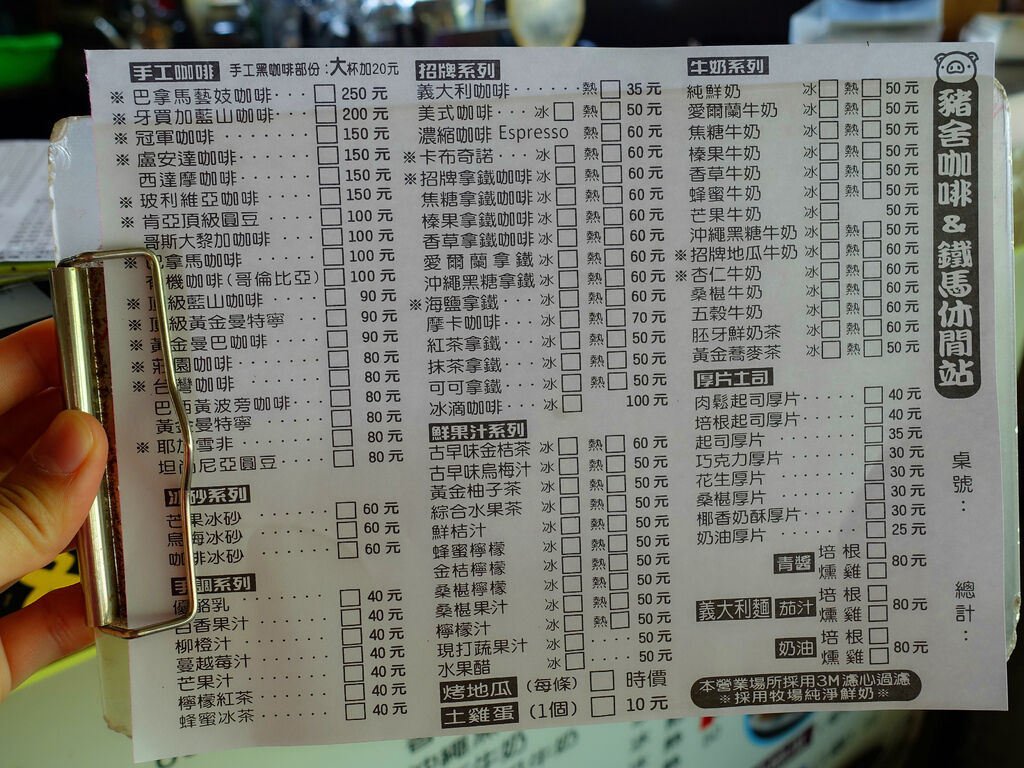 手工咖啡 手工黑咖啡部份:大杯加20元
※ 巴拿馬藝妓咖啡 250元
※ 牙買加藍山咖啡 200元
※ 冠軍咖啡 150元
※ 盧安達咖啡 150元
西達摩咖啡 150元
※ 玻利維亞咖啡 150元
※ 肯亞頂級圓豆 100元
哥斯大黎加咖啡 100元
※ 巴拿馬咖啡 100元
有機咖啡(哥倫比亞) 100元
※ 頂級藍山咖啡 90元
※ 頂級黃金曼特寧 90元
※ 黃金曼巴咖啡 90元
※ 莊園咖啡 80元
※ 台灣咖啡 80元
巴西黃波旁咖啡 80元
黃金曼特寧 80元
※ 耶加雪非 80元
坦尚尼亞圓豆 80元
冰砂系列
芒果冰砂 60元
烏梅冰砂 60元
咖啡冰砂 60元
手調系列
優酪乳 40元
百香果汁 40元
柳橙汁 40元
蔓越莓汁 40元
芒果汁 40元
檸檬紅茶 40元
蜂蜜冰茶 40元
招牌系列
義大利咖啡 熱 35元
美式咖啡 冰 熱 50元
濃縮咖啡 Espresso 熱 60元
※卡布奇諾 冰 熱 60元
※招牌拿鐵咖啡 冰 熱 60元
焦糖拿鐵咖啡 冰 熱 60元
榛果拿鐵咖啡 冰 熱 60元
香草拿鐵咖啡 冰 熱 60元
愛爾蘭拿鐵 冰 熱 60元
沖繩黑糖拿鐵 冰 熱 60元
※海鹽拿鐵 冰 熱 60元
摩卡咖啡 冰 熱 70元
紅茶拿鐵 冰 熱 50元
抹茶拿鐵 冰 熱 50元
可可拿鐵 冰 熱 50元
冰滴咖啡 冰 100元
鮮果汁系列
古早味金桔茶 冰 熱 60元
古早味烏梅汁 冰 熱 50元
黃金柚子茶 冰 熱 50元
綜合水果茶 冰 熱 50元
鮮桔汁 冰 熱 50元
蜂蜜檸檬 冰 熱 50元
金桔檸檬 冰 熱 50元
桑椹檸檬 冰 熱 50元
桑椹果汁 冰 熱 50元
檸檬汁 冰 熱 50元
現打蔬果汁 冰 50元
水果醋 冰 50元
烤地瓜 (每條) 時價
土雞蛋 (1個) 10元
牛奶系列
純鮮奶 冰 熱 50元
愛爾蘭牛奶 冰 熱 50元
焦糖牛奶 冰 熱 50元
榛果牛奶 冰 熱 50元
香草牛奶 冰 熱 50元
蜂蜜牛奶 冰 熱 50元
芒果牛奶 冰 50元
沖繩黑糖牛奶 冰 熱 50元
※招牌地瓜牛奶 冰 熱 60元
※杏仁牛奶 冰 熱 60元
桑椹牛奶 冰 熱 60元
五穀牛奶 冰 熱 60元
胚牙鮮奶茶 冰 熱 60元
黃金蕎麥茶 冰 熱 50元
厚片土司
肉鬆起司厚片 40元
培根起司厚片 40元
起司厚片 35元
巧克力厚片 30元
花生厚片 30元
桑椹厚片 30元
椰香奶酥厚片 30元
奶油厚片 25元
義大利麵
青醬 培根 燻雞 80元
茄汁 培根 燻雞 80元
奶油 培根 燻雞 80元
本營業場所採用3M濾心過濾
※採用牧場純淨鮮奶※
豬舍咖啡&鐵馬休閒站
桌號:
總計: